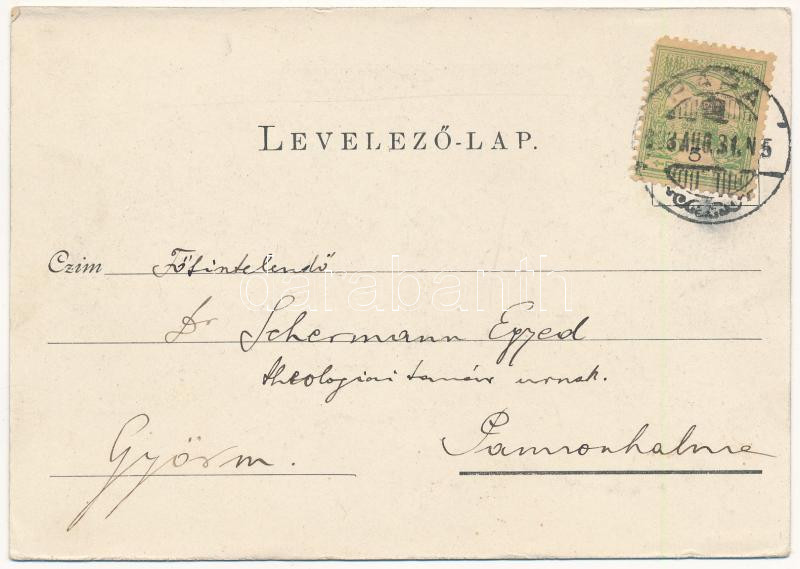 LEVELEZŐ-LAP.
5
Czim Főtintelendő
Dr Schermann Egyed
theologiai tanár urnak.
Pannonhalma
Győrm.
darabanth